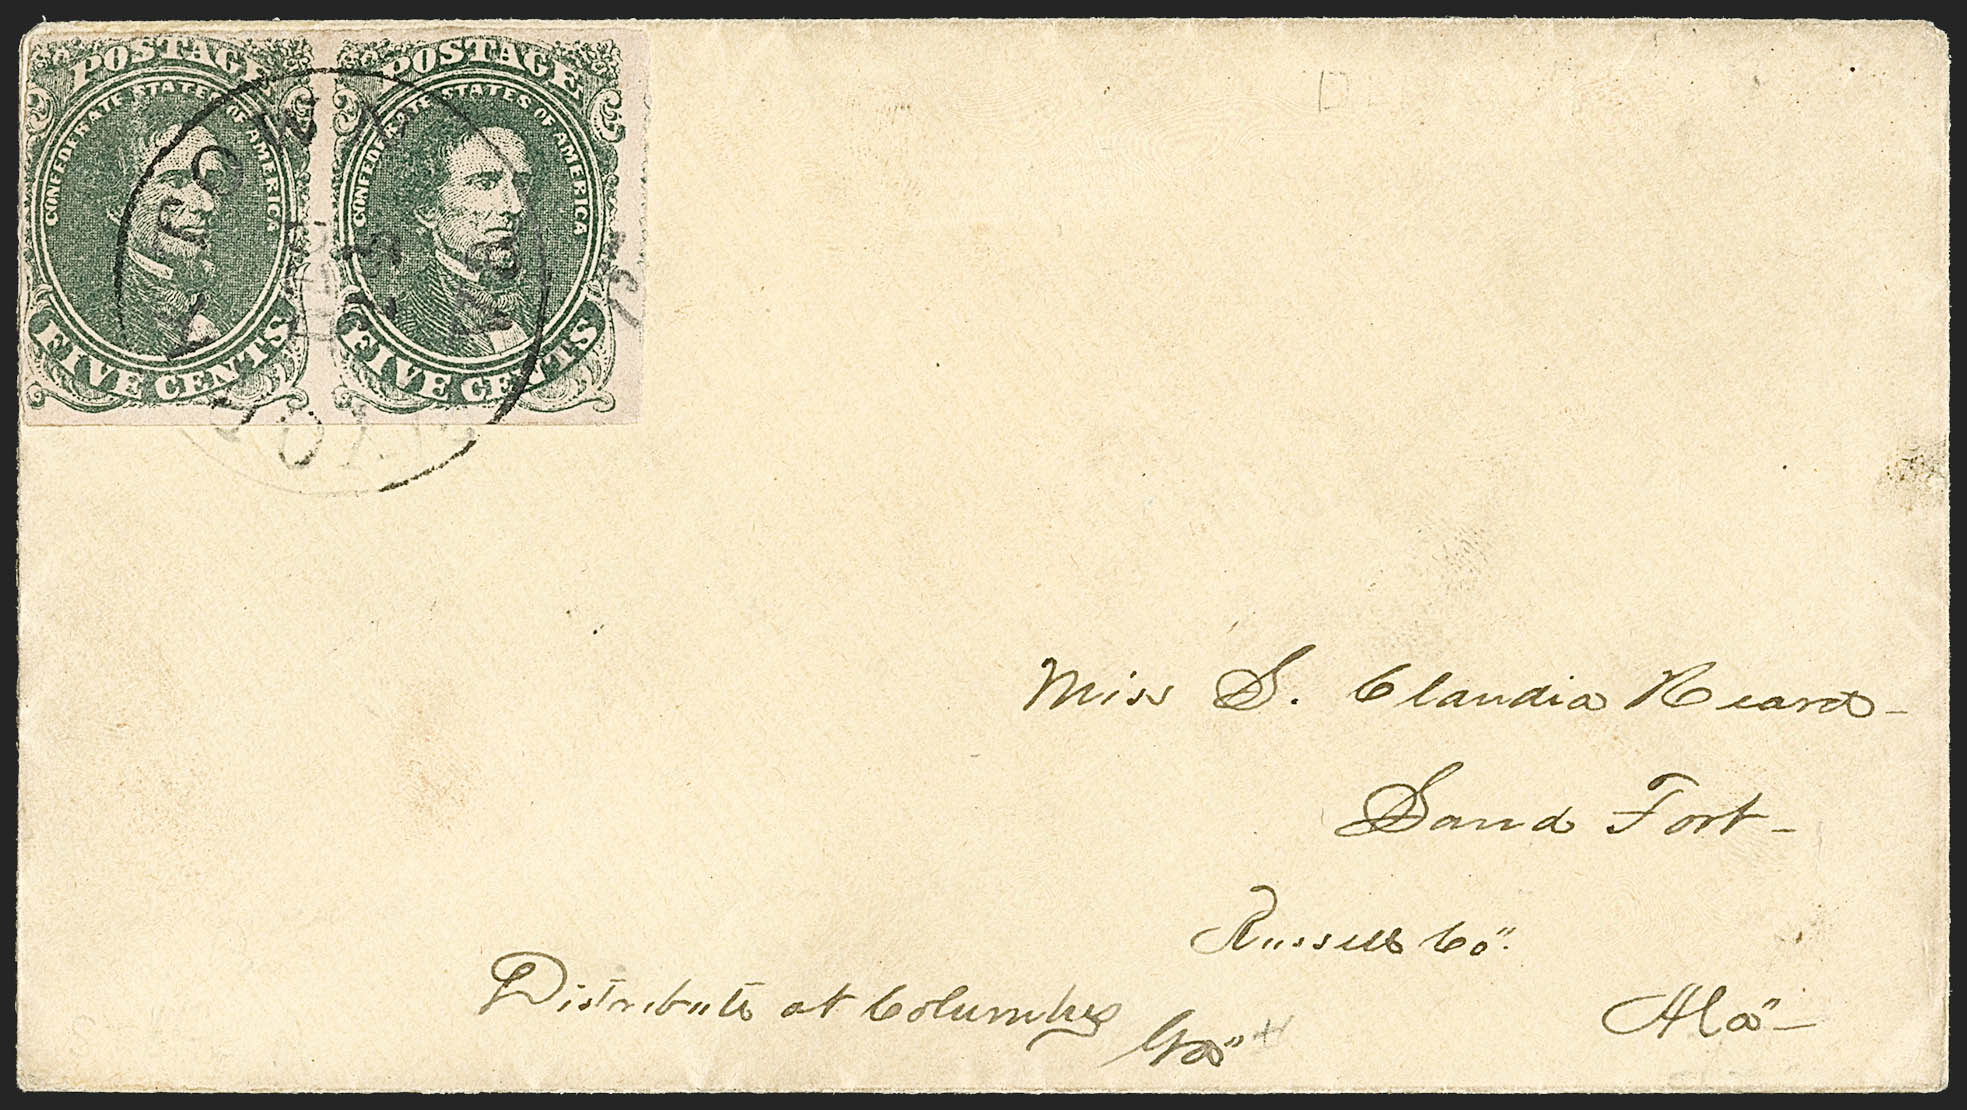 POSTAGE POSTAGE
CONFEDERATE STATES OF AMERICA CONFEDERATE STATES OF AMERICA
FIVE CENTS FIVE CENTS
Miss S. Claudia Heard-
Sand Fort-
Russell Co".
Ala"-
Distribute at Columbus
Ga"